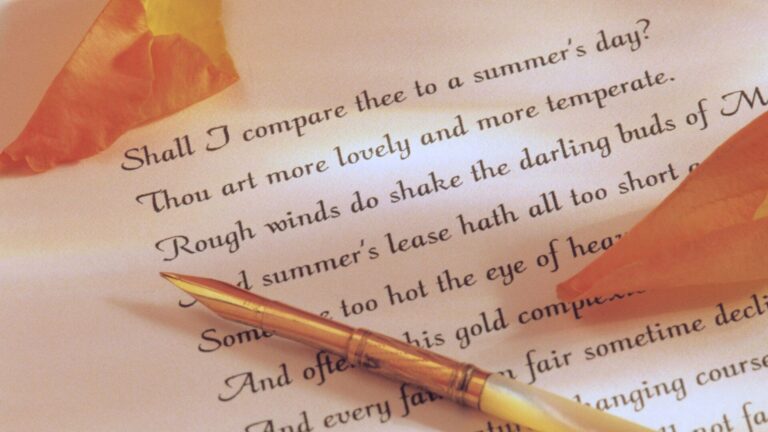 Shall I compare thee to a summer's day?
Thou art more lovely and more temperate.
Rough winds do shake the darling buds of M
summer's lease hath all too short
too hot the eye of
And his gold
And every fair sometime
hanging course
not